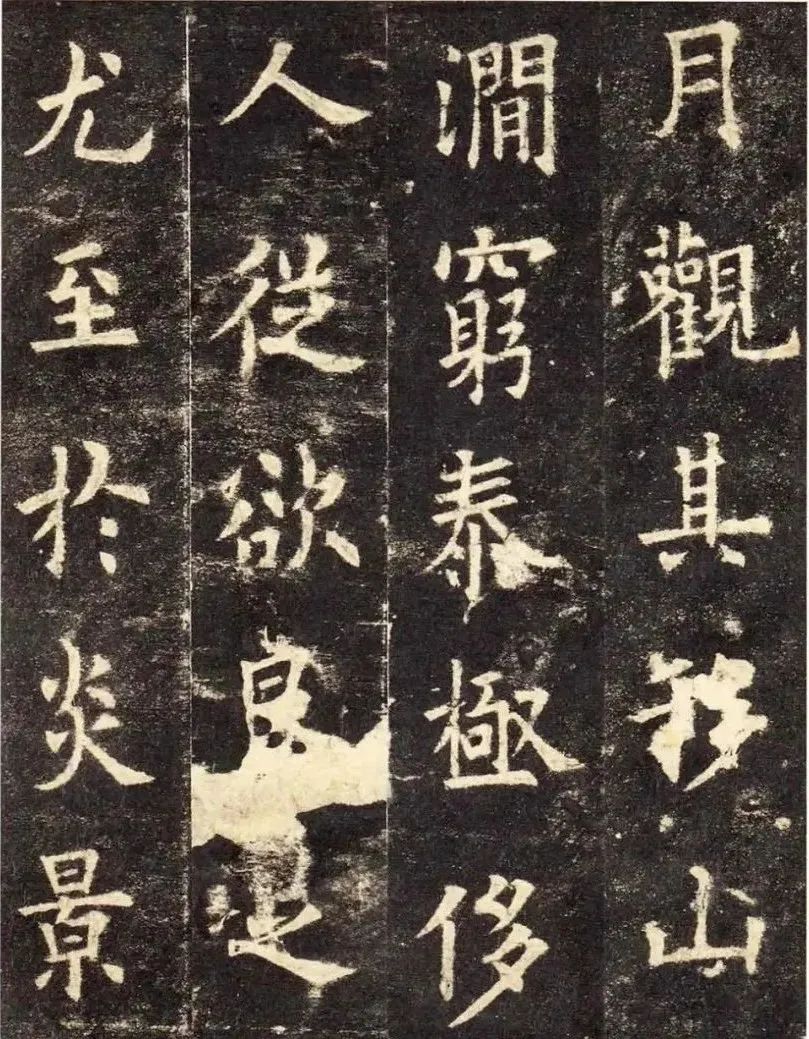 月觀其移山
澗窮泰極侈
人從欲良之
尤至於炎景